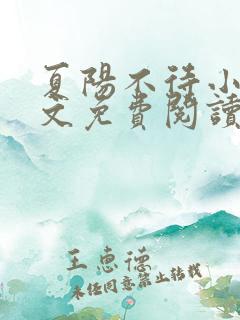 夏陽不待小
文免費閱讀
王惠德
未经同意禁止转载